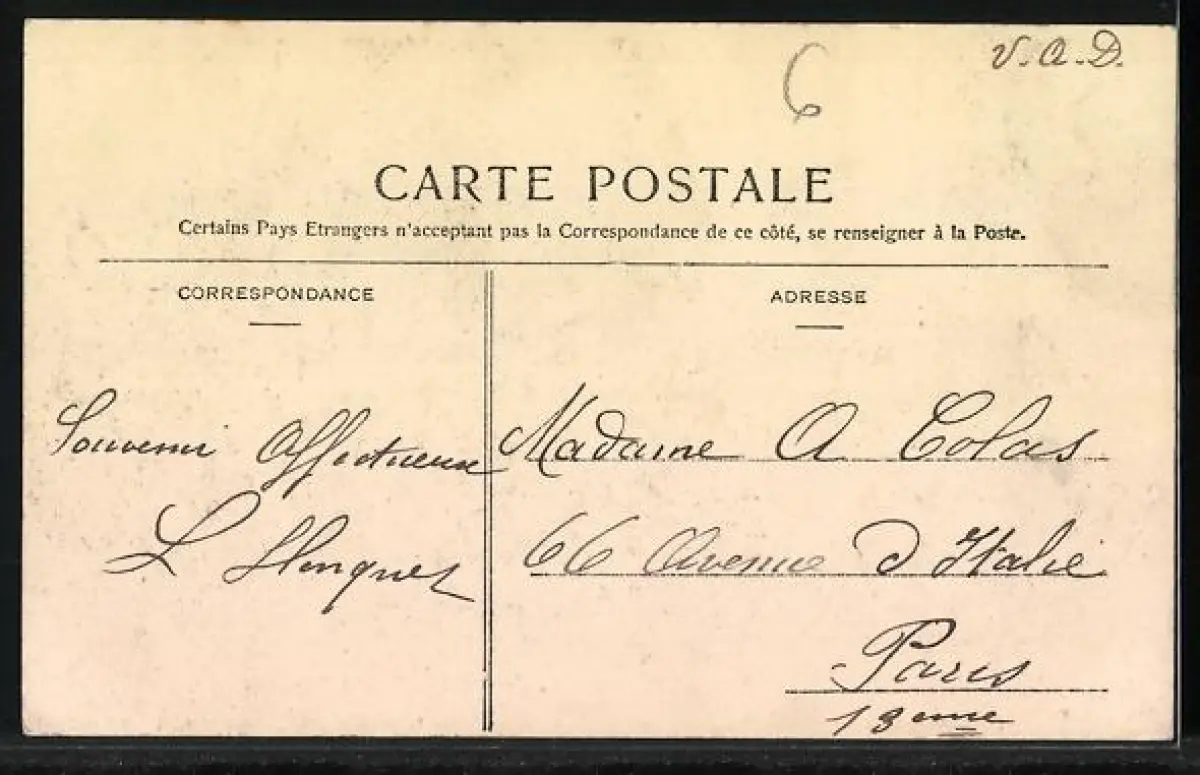 V.A.D.
6
CARTE POSTALE
Certains Pays Etrangers n'acceptant pas la Correspondance de ce côté, se renseigner à la Poste.
CORRESPONDANCE
Souvenir Affectueux
L
ADRESSE
Madame A Colas
66 Avenue d Italie
Paris
13eme